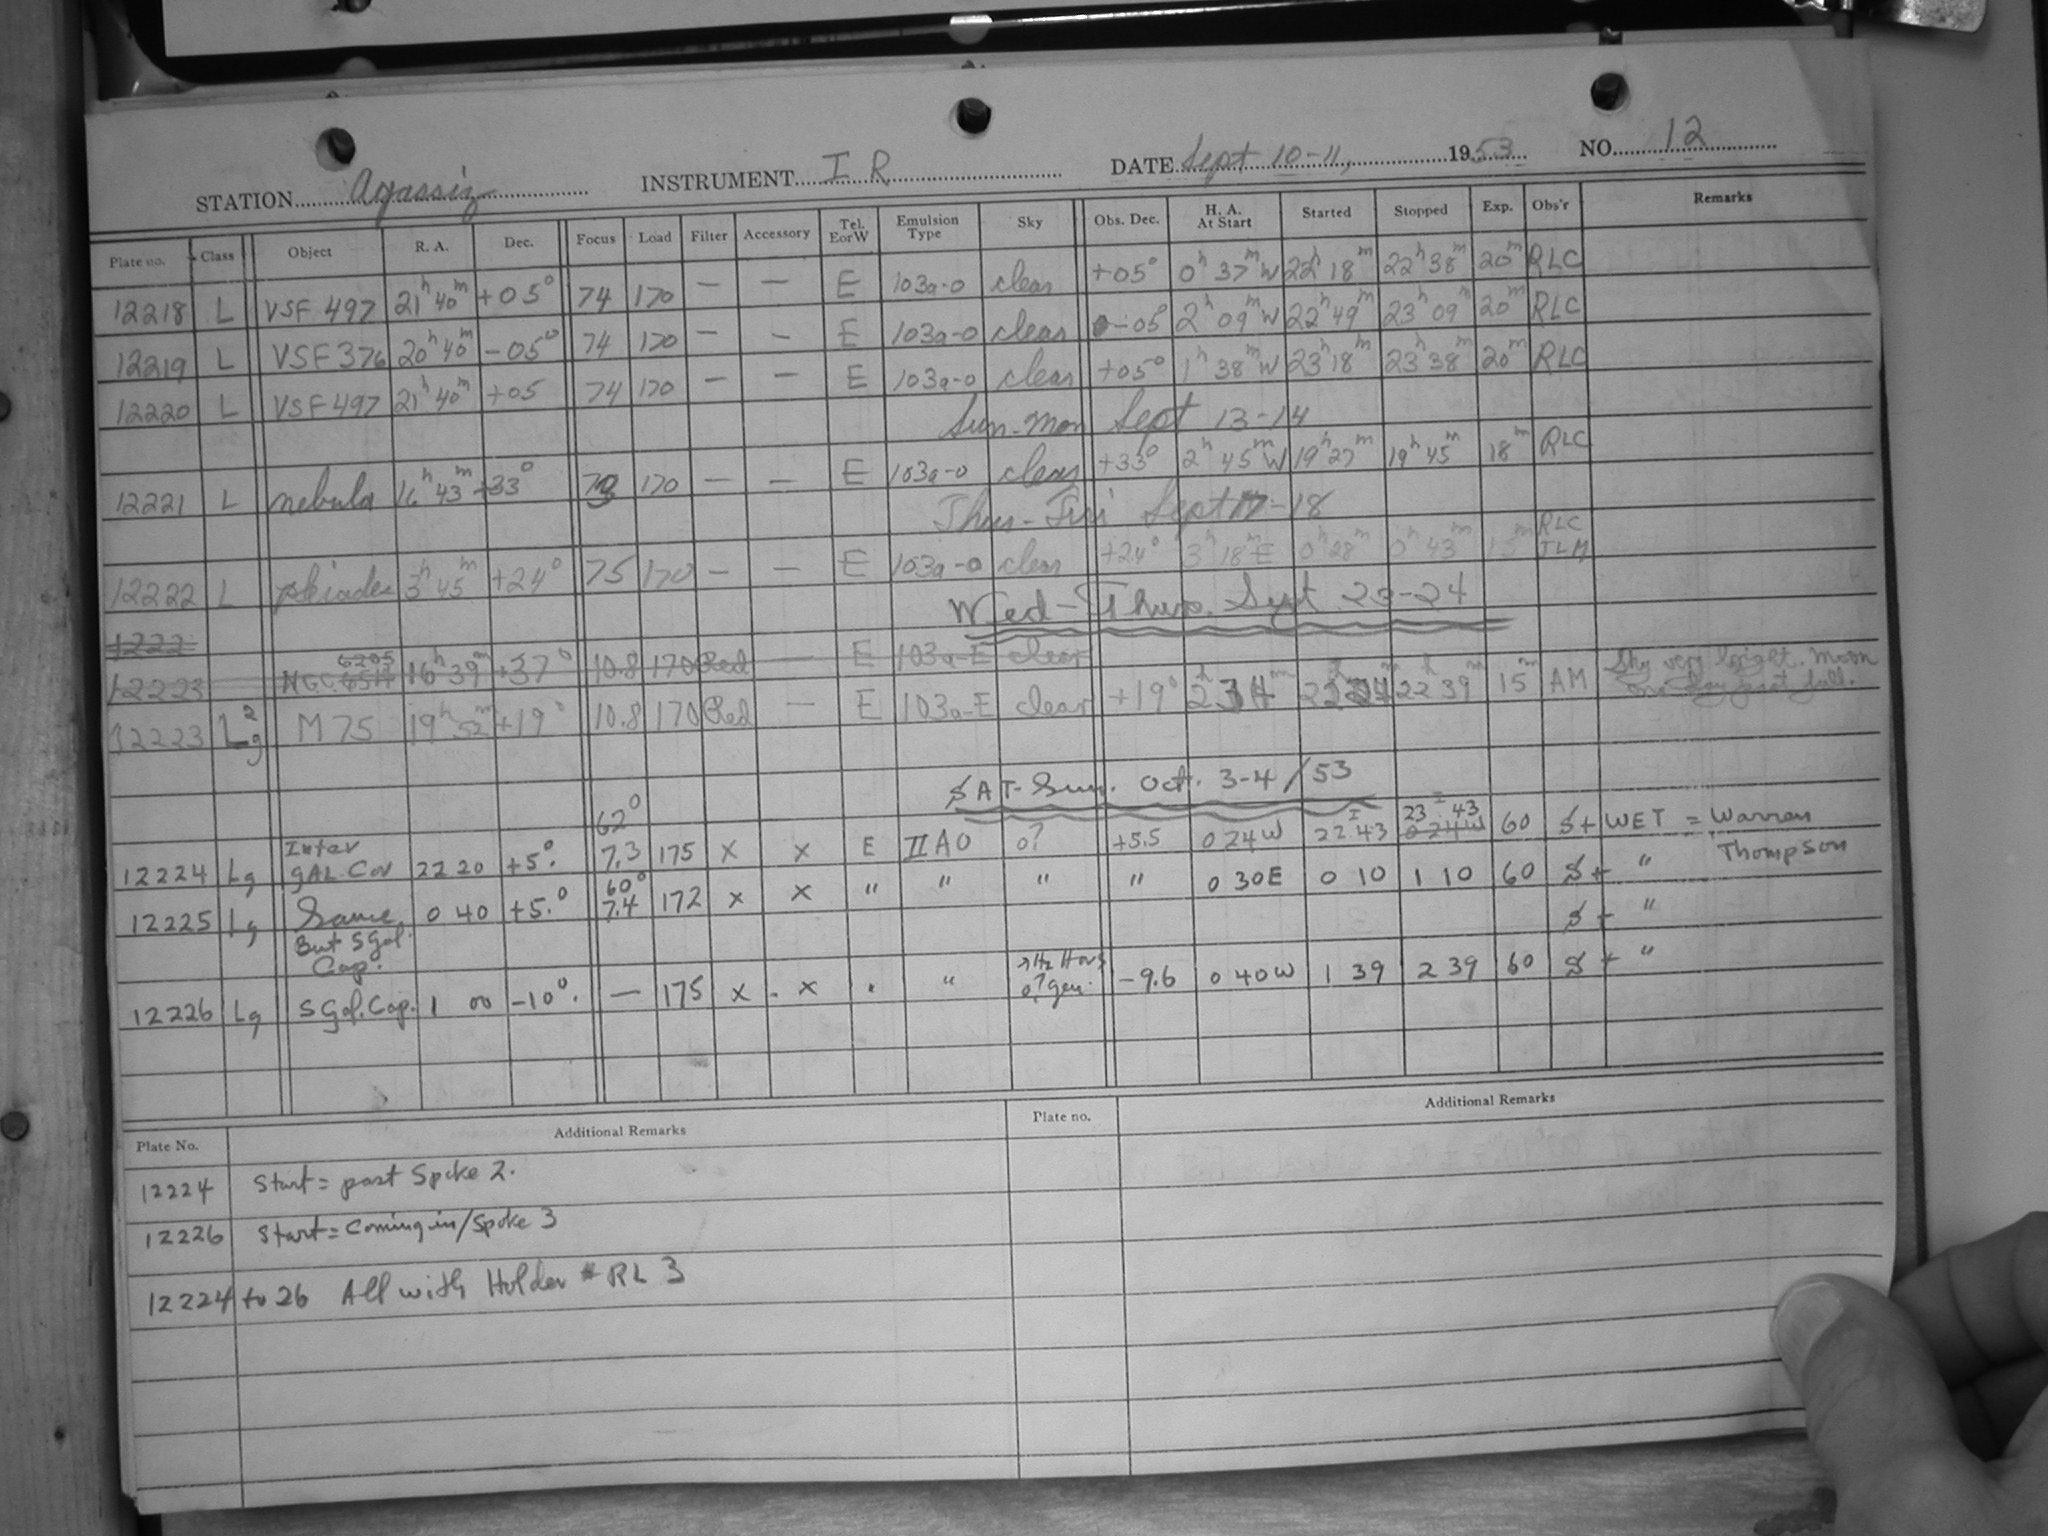 STATION Agassiz INSTRUMENT I R DATE Sept 10-11, 1953 NO. 12
Plate no. Class Object R. A. Dec. Focus Load Filter Accessory Tel. E or W Emulsion Type Sky Obs. Dec. H. A. At Start Started Stopped Exp. Obs'r Remarks
12218 L VSF 497 21h 40m +05° 74 170 — — E 103a-o clear +05° 0h 37m W 22h 18m 22h 38m 20m RLC
12219 L VSF 376 20h 40m -05° 74 170 — — E 103a-o clear -05° 2h 09m W 22h 49m 23h 09m 20m RLC
12220 L VSF 497 21h 40m +05 74 170 — — E 103a-o clear +05° 1h 38m W 23h 18m 23h 38m 20m RLC
Sun-Mon Sept 13-14
12221 L nebula 16h 43m +33° 170 — — E 103a-o clear +33° 2h 45m W 19h 27m 19h 45m 18m RLC
Thur-Fri Sept 17-18
12222 L pleiades 3h 45m +24° 75 170 — — E 103a-o clear +24° 3h 18m E 0h 28m 0h 43m 15m RLC JLM
Wed-Thurs. Sept 23-24
1222
12223 NGC 6205 16h 39m +37° 10.8 170 Red — E 103a-E clear
12223 L2g M 75 19h 52m +19° 10.8 170 Red — E 103a-E clear +19° 2h 34m 22h 24m 22h 39m 15m AM Sky very bright. Moon one day past full.
SAT-Sun. Oct. 3-4/53
12224 Lg Inter gAL. Cor 22 20 +5°. 62° 7.3 175 x x E IIAO o? +5.5 0 24W 22 43 0 24W 23 43 60 S+ WET = Warren Thompson
12225 Lg Same 0 40 +5.° 60° 7.4 172 x x " " " " 0 30E 0 10 1 10 60 S+ "
But S gal. Cap. S + "
12226 Lg S Gal. Cap. 1 00 -10°. — 175 x . x . " -9.6 0 40W 1 39 2 39 60 S + "
Plate No. Additional Remarks Plate no. Additional Remarks
12224 Start = past Spoke 2.
12226 Start = Coming in/Spoke 3
12224 to 26 All with Holder # RL 3